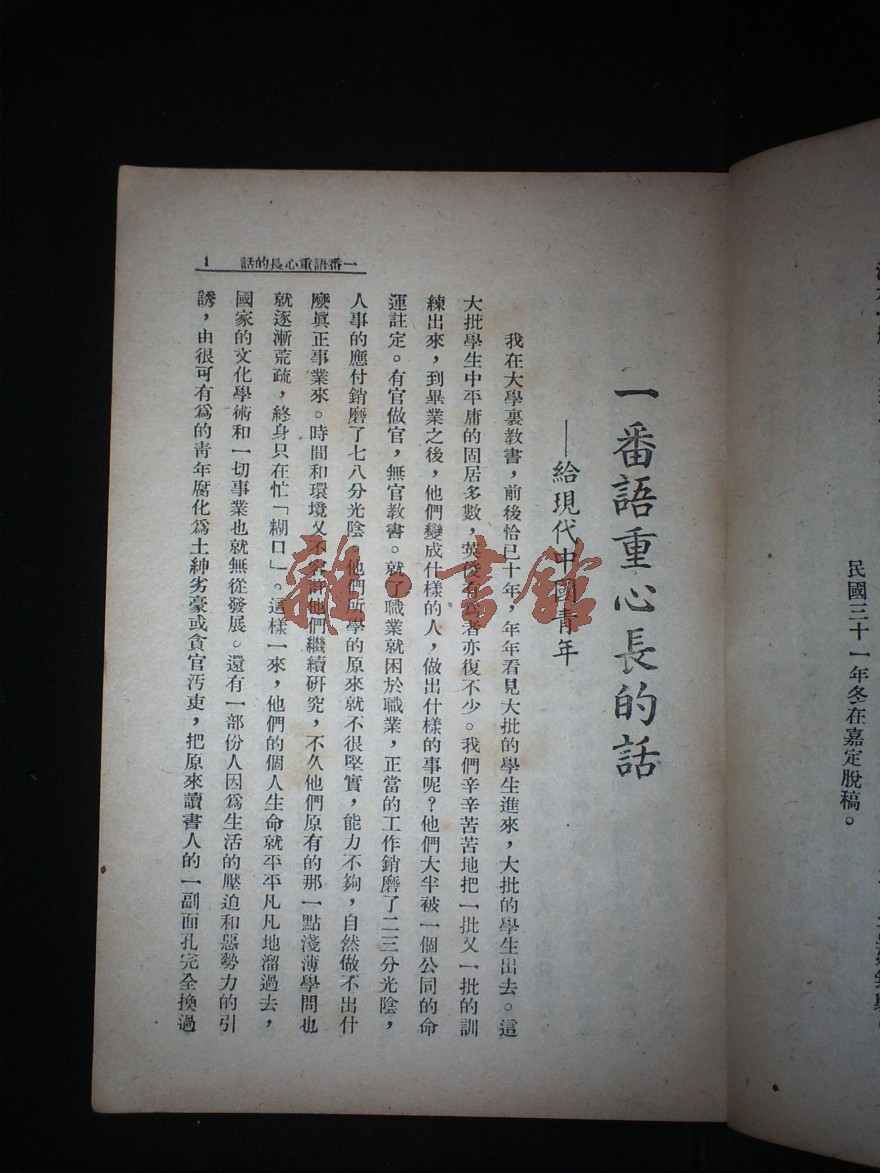 民國三十一年冬在嘉定脫稿。
一番語重心長的話
1
一番語重心長的話
——給現代中國青年
我在大學裏教書，前後恰已十年，年年看見大批的學生進來，大批的學生出去。這
大批學生中平庸的固居多數，英俊有爲者亦復不少。我們辛辛苦苦地把一批又一批的訓
練出來，到畢業之後，他們變成什樣的人，做出什樣的事呢？他們大半被一個公同的命
運註定。有官做官，無官教書。就了職業就困於職業，正當的工作銷磨了二三分光陰，
人事的應付銷磨了七八分光陰，他們所學的原來就不很堅實，能力不夠，自然做不出什
麼眞正事業來。時間和環境又不容許他們繼續研究，不久他們原有的那一點淺薄學問也
就逐漸荒疏，終身只在忙「糊口」。這樣一來，他們的個人生命就平平凡凡地溜過去，
國家的文化學術和一切事業也就無從發展。還有一部份人因爲生活的壓迫和惡勢力的引
誘，由很可有爲的靑年腐化爲土紳劣豪或貪官汚吏，把原來讀書人的一副面孔完全換過
雜·書館